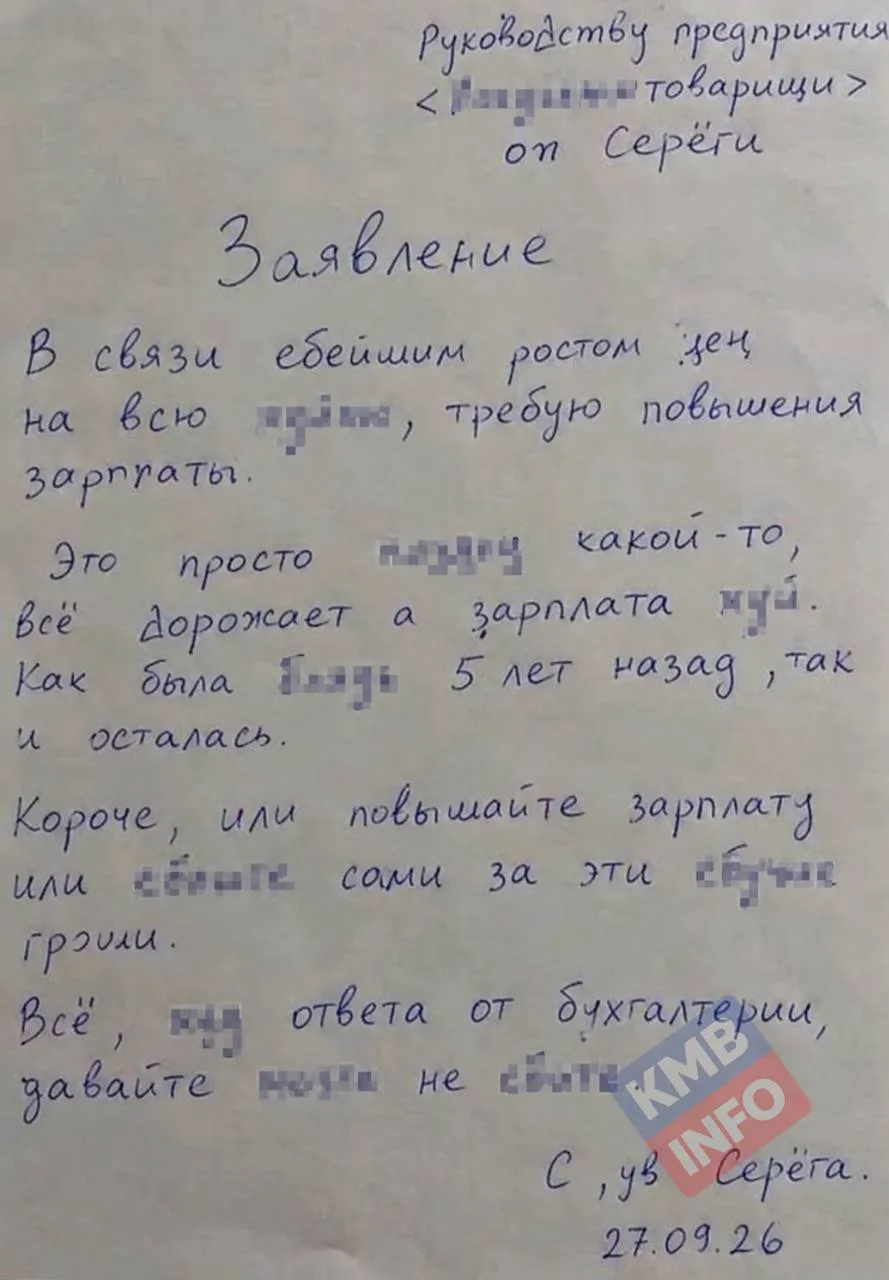 Руководству предприятия
< товарищи >
оп Серёги
Заявление
В связи ебейшим ростом цен
на всю , требую повышения
зарплаты.
Это просто какой-то,
всё дорожает а зарплата хуй.
Как была блядь 5 лет назад, так
и осталась.
Короче, или повышайте зарплату
или сами за эти
гроши.
Всё, жду ответа от бухгалтерии,
давайте не
С, ув Серёга.
27.09.26
KMB
INFO